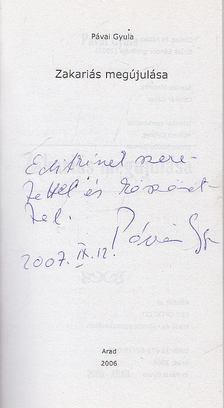 Pávai Gyula
Zakariás megújulása
Editkének szere-
tettel és köszönet-
tel.
Pávai Gy
2007. IX. 12.
Arad
2006